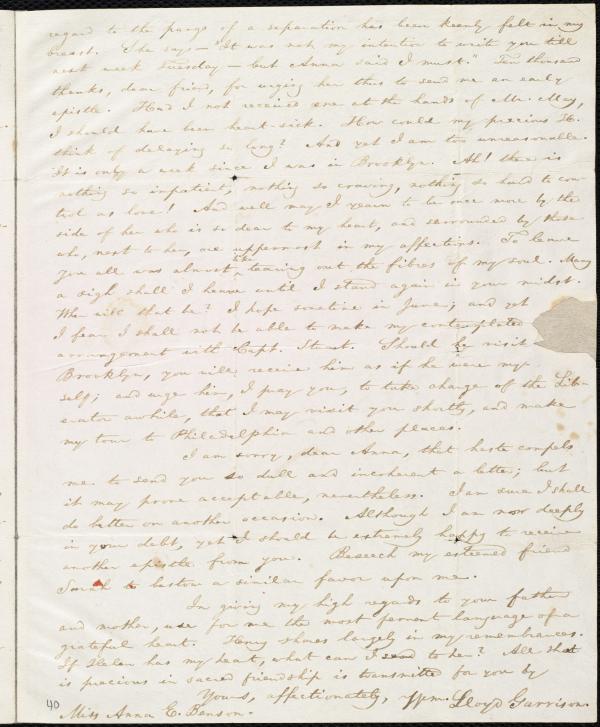 regard to the pangs of a separation has been keenly felt in my
breast. She says — "It was not my intention to write you till
next week Tuesday — but Anna said I must." Ten thousand
thanks, dear friend, for urging her thus to send me an early
epistle. Had I not received one at the hands of Mr. May,
I should have been heart-sick. How could my precious H.
think of delaying so long? And yet I am too unreasonable.
It is only a week since I was in Brooklyn. Ah! there is
nothing so impatient, nothing so craving, nothing so hard to con-
trol as love! And well may I yearn to be once more by the
side of her who is so dear to my heart, and surrounded by those
who, next to her, are uppermost in my affections. To leave
you all was almost like tearing out the fibres of my soul. Many
a sigh shall I heave until I stand again in your midst.
When will that be? I hope sometime in June; and yet
I fear I shall not be able to make my contemplated
arrangement with Capt. Stuart. Should he visit
Brooklyn, you will receive him as if he were my-
self; and urge him, I pray you, to take charge of the Lib-
erator awhile, that I may visit you shortly, and make
my tour to Philadelphia and other places.
I am sorry, dear Anna, that haste compels
me to send you so dull and incoherent a letter; but
it may prove acceptable, nevertheless. I am sure I shall
do better on another occasion. Although I am now deeply
in your debt, yet I should be extremely happy to receive
another epistle from you. Beseech my esteemed friend
Sarah to bestow a similar favor upon me.
In giving my high regards to your father
and mother, use for me the most fervent language of a
grateful heart. Henry shares largely in my remembrances.
If Helen has my heart, what can I send to her? All that
is precious in sacred friendship is transmitted for you by
Yours, affectionately, Wm. Lloyd Garrison.
Miss Anna E. Benson.
40